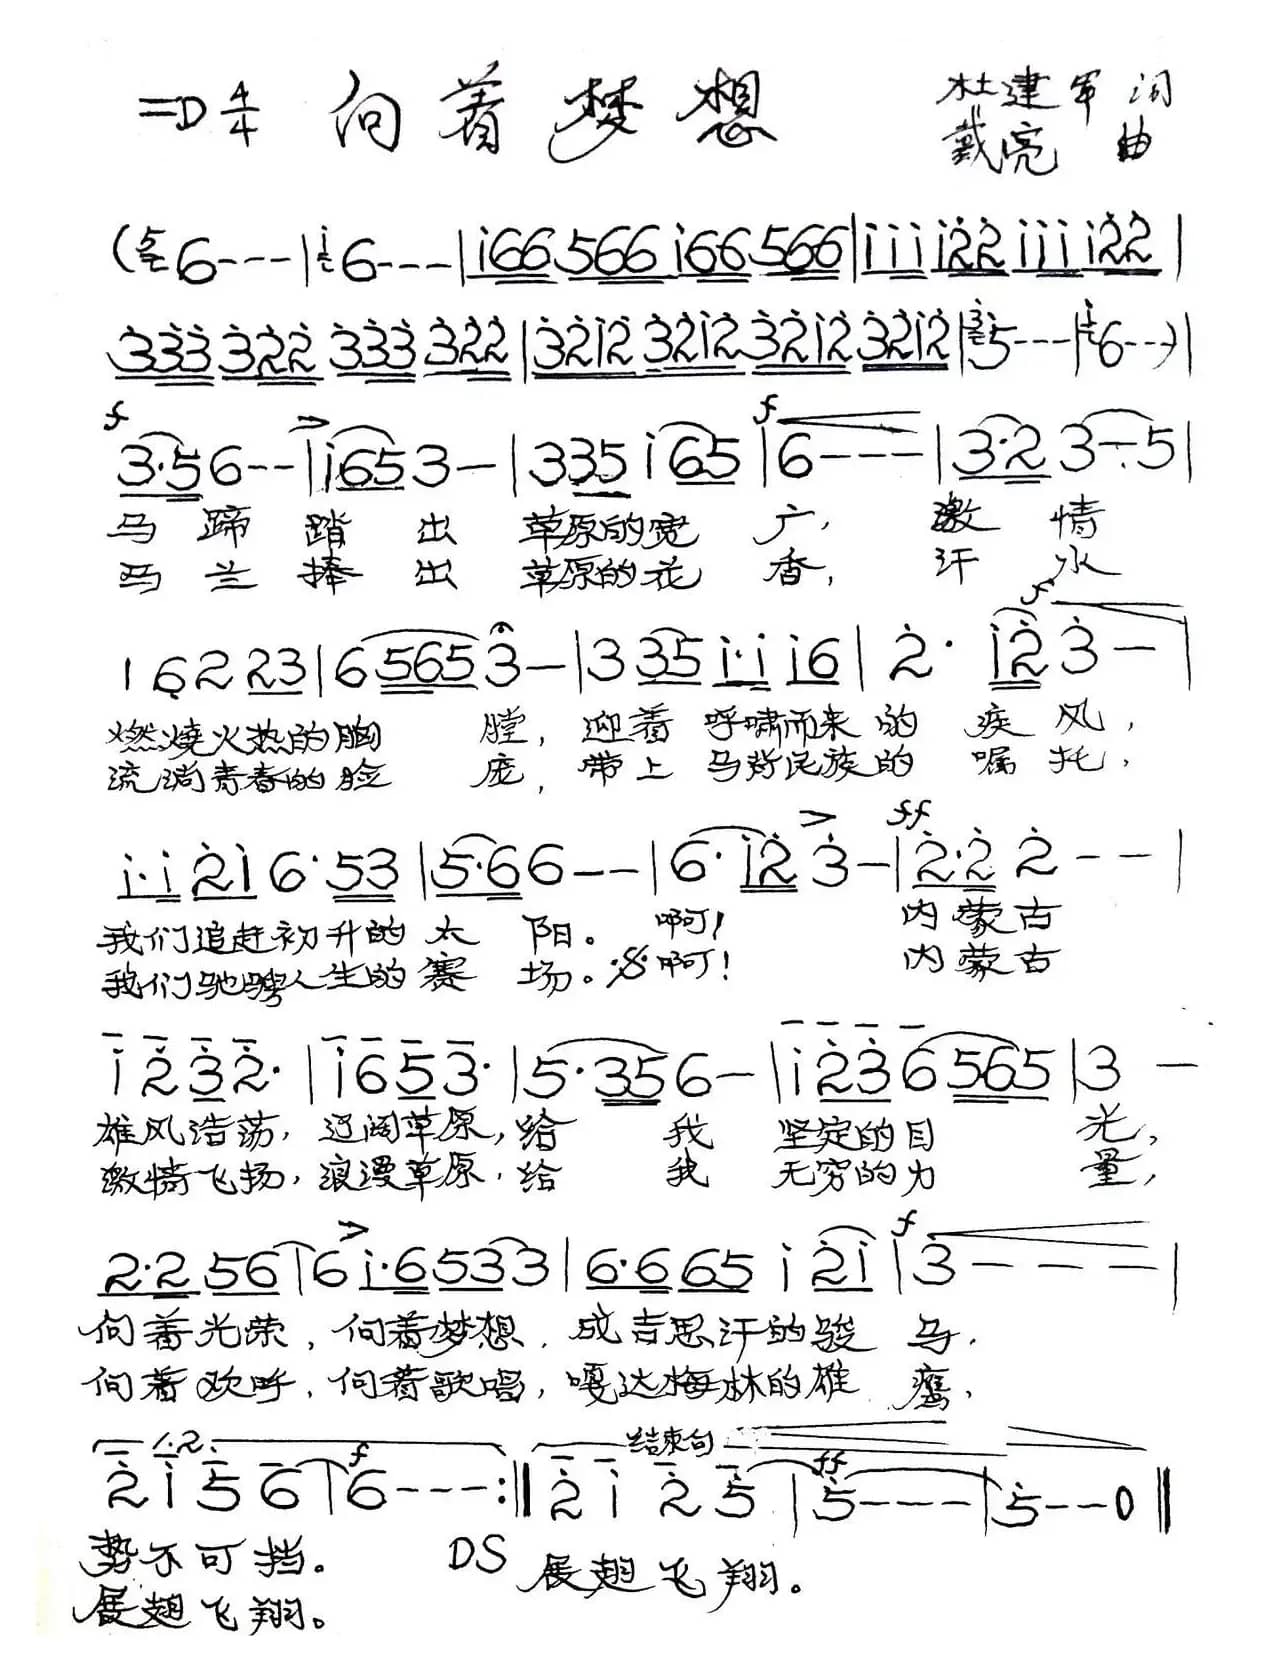 =D 4/4 向着梦想 杜建军 词
戴亮 曲
(5 6--- | i 6--- | i66 566 i66 566 | iii i22 iii i22 |
333 322 333 322 | 3212 3212 3212 3212 | 3 5--- | i 6--) |
f f
3·5 6-- | i·65 3- | 3 35 i 65 | 6--- | 3·2 3-·5 |
马蹄踏出草原的宽广，激情
马兰捧出草原的花香，汗水
f
1 6 2 23 | 6 565 3- | 3 35 i·i i6 | 2· i2 3- |
燃烧火热的胸膛，迎着呼啸而来的疾风，
流淌青春的脸庞，带上马背民族的嘱托，
ff
i·i 2i 6·53 | 5·6 6-- | 6·i2 3- | 2·2 2-- |
我们追赶初升的太阳。啊！内蒙古
我们驰骋人生的赛场。啊！内蒙古
i 2 3 2· | i 6 5 3· | 5·35 6- | i 23 6 565 | 3 -
雄风浩荡，辽阔草原，给我坚定的目光，
激情飞扬，浪漫草原，给我无穷的力量，
f
2·2 56 | 6 i·6 53 3 | 6·6 65 i 2i | 3 - - - |
向着光荣，向着梦想，成吉思汗的骏马，
向着欢呼，向着歌唱，嘎达梅林的雄鹰，
1.2 结束句
f ff
2 i 5 6 | 6--- :‖ 2 i 2 5 | 5---- | 5--0 ‖
势不可挡。 DS 展翅飞翔。
展翅飞翔。